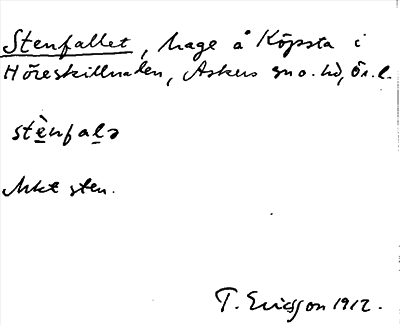 Stenfallet, hage å Köpsta i
Höreskillnaden, Askers sn o. hd, Ör. l.
stènfalə
Mkt sten.
T. Ericsson 1912.